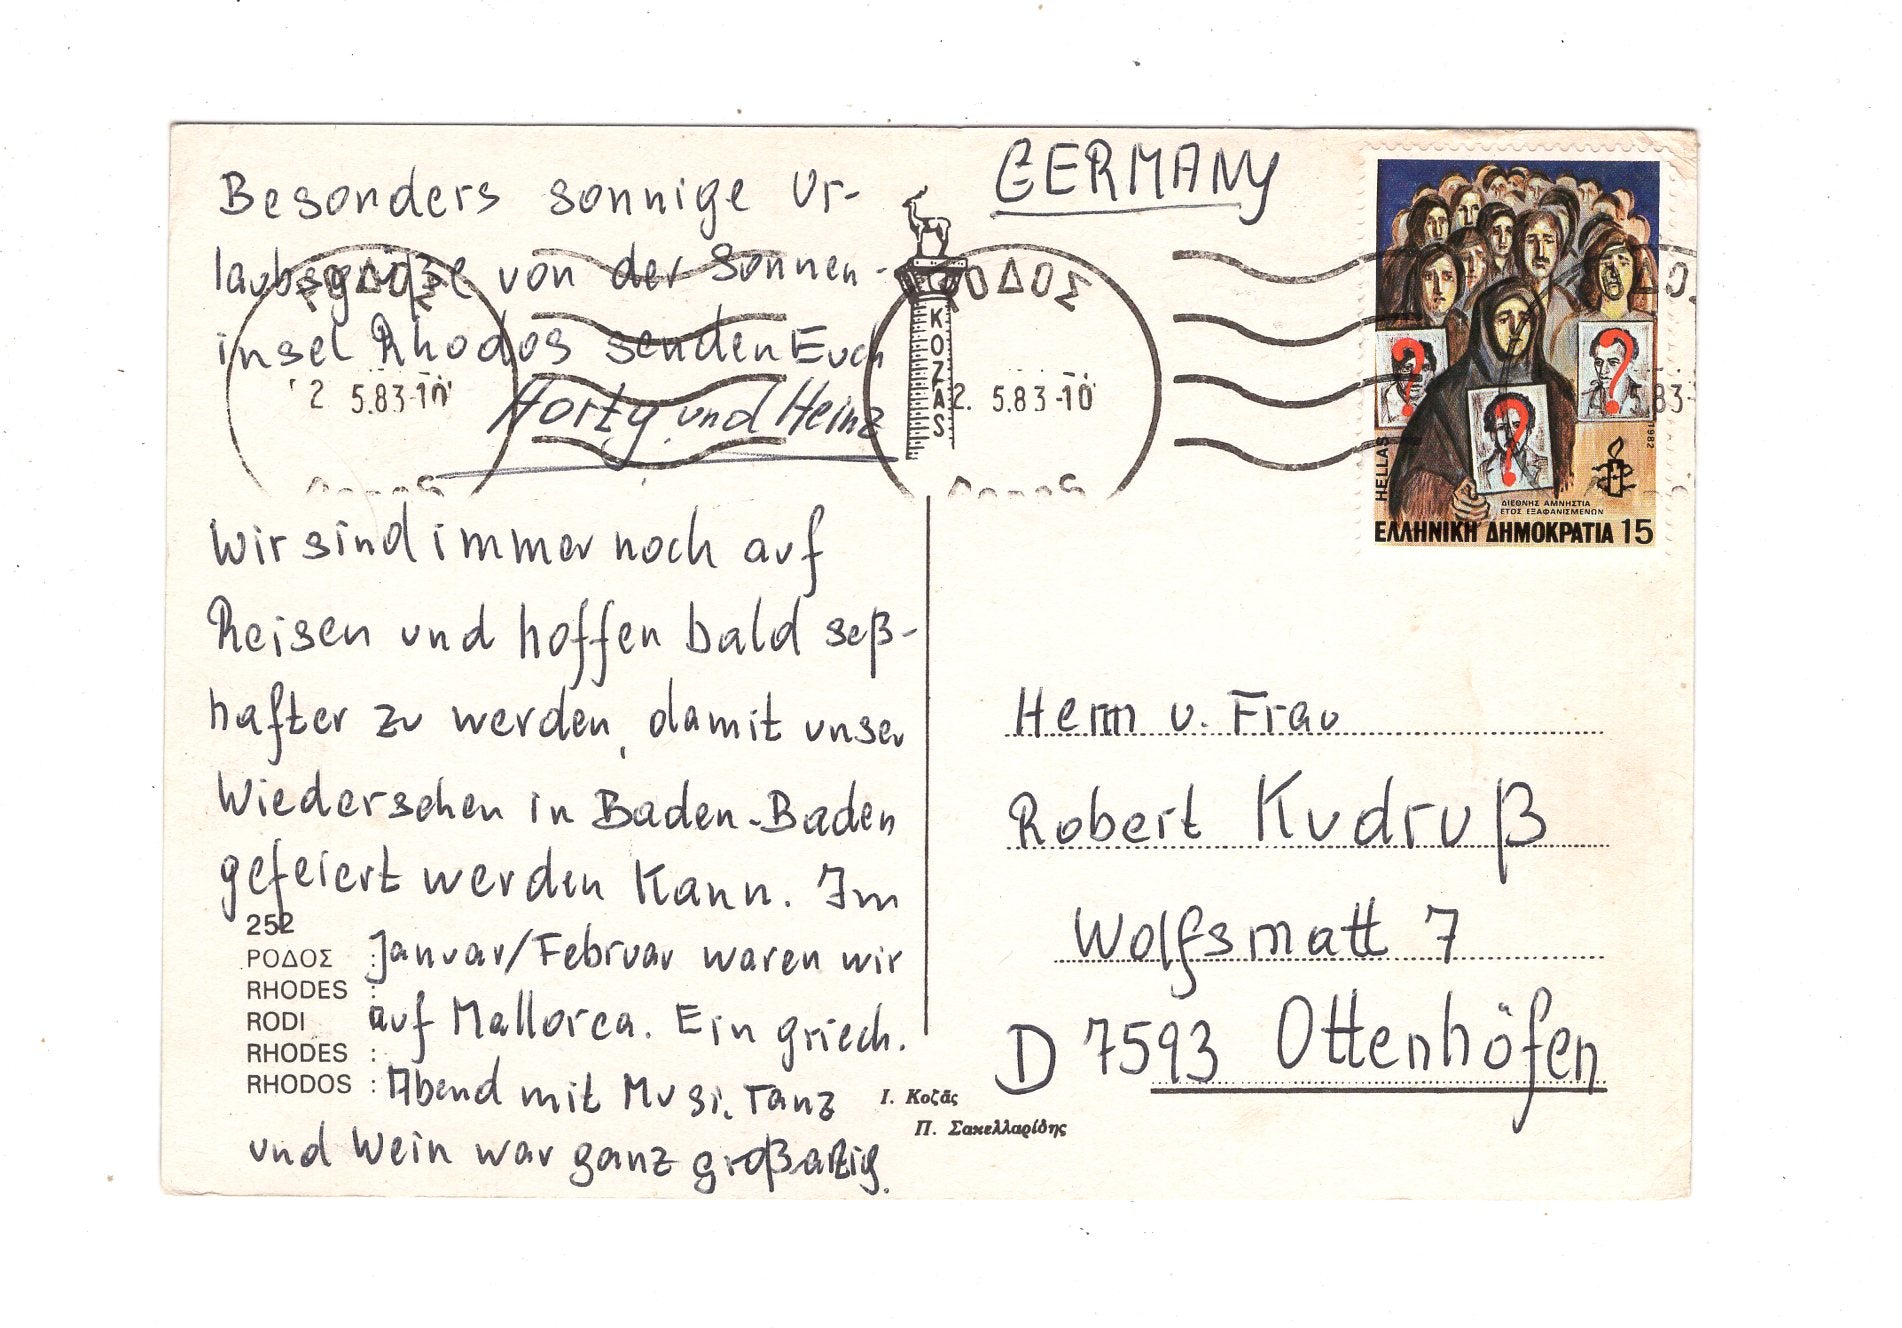 Besonders sonnige Ur-
laubsgrüße von der Sonnen-
insel Rhodos senden Euch
Horty und Heinz
Wir sind immer noch auf
Reisen und hoffen bald seß-
hafter zu werden, damit unser
Wiedersehen in Baden-Baden
gefeiert werden kann. Im
Januar/Februar waren wir
auf Mallorca. Ein griech.
Abend mit Musi, Tanz
und Wein war ganz großartig.
252
ΡΟΔΟΣ :
RHODES :
RODI
RHODES :
RHODOS :
Ι. Κοζᾶς
Π. Σακελλαρίδης
GERMANY
ΡΟΔΟΣ
2 5.83-10
KOZAS
ΡΟΔΟΣ
2. 5.83-10
ΔΟΣ
5.83-
HELLAS
1982
ΔΙΕΘΝΗΣ ΑΜΝΗΣΤΙΑ
ΕΤΟΣ ΕΞΑΦΑΝΙΣΜΕΝΩΝ
ΕΛΛΗΝΙΚΗ ΔΗΜΟΚΡΑΤΙΑ 15
Herrn u. Frau
Robert Kudruß
Wolfsmatt 7
D 7593 Ottenhöfen